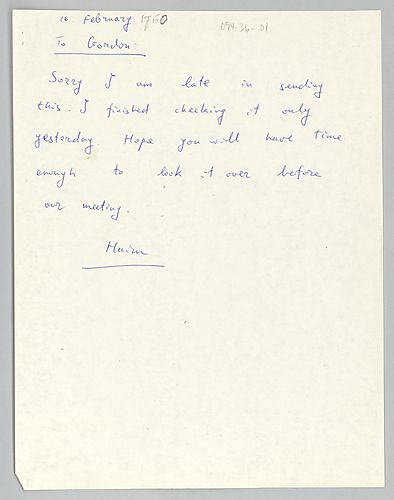 16 February 1960 094-36-01
To Gordon:
Sorry I am late in sending
this. I finished checking it only
yesterday. Hope you will have time
enough to look it over before
our meeting.